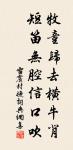 牧童歸去橫牛背
短笛無腔信口吹
雷震村晚詞典網集